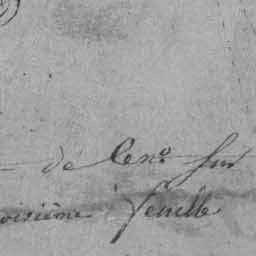 de Cen° sur
oisième feuille